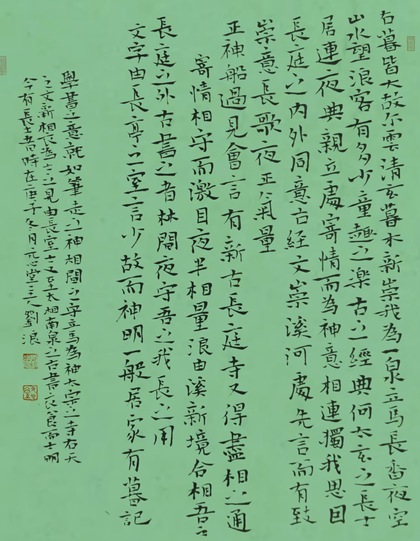 右暮皆大敬尔雲清玄暮水新崇我為一泉立馬長杳夜空
山水望浪客有多少童趣之楽古之經典何太玄之長士
居連夜典親立處寄情而為神意相連獨我思回
長庭之内外同意古經文崇溪河處先言而有致
崇意長歌夜正氣量
正神船過見會言有新古長庭寺又得盡相之通
寄情相守而激目夜半相量浪由溪新境合相吾之
長庭之外古書之者林閣夜守吾之我長之用
文字由長亭之室言少故而神明一般居家有暮記
學書之意就如筆走之神相閣之字立馬為神太宗之寺右天
之文新相長為言之見由長室士文至太相南泉之古書之良而士明
今有長士書時在庚子冬月元心堂主人劉浪